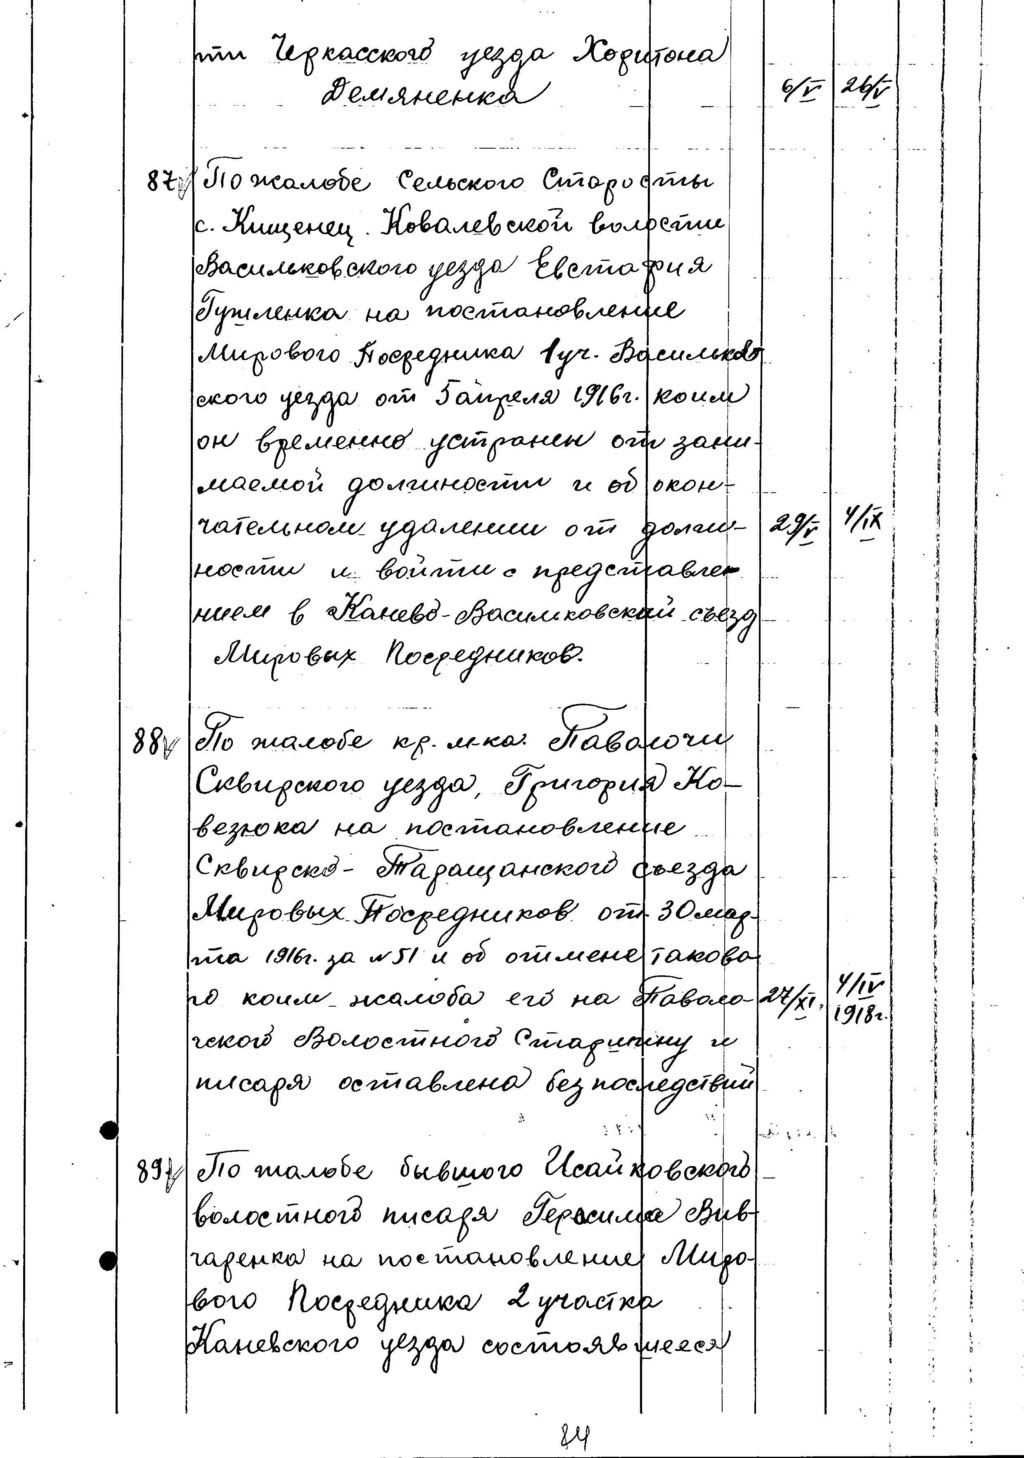 ти Черкасского уезда Харитона
Демяненка 6/V 26/V
87 По жалобе Сельского Старосты
с. Кищенец. Ковалевской волости
Васильковского уезда Евстафия
Гужленка на постановление
Мирового Посредника 1 уч. Васильков
ского уезда от 5 апреля 1916 г. коим
он временно устранен от зани-
маемой должности и об окон-
чательном удалении от долж- 29/V 4/IX
ности и войти с представле
нием в Канево-Василковский съезд
Мировых Посредников.
88 По жалобе кр. м-ка. Паволочи
Сквирского уезда, Григория Ко-
везюка на постановление
Сквирско-Таращанского съезда
Мировых Посредников от 30 мар-
та 1916 г. за № 51 и об отмене таково
го коим жалоба его на Паволо- 27/XI. 4/IV 1918 г.
чской Волостного Старшину и
писаря оставлена без последствий
89 По жалобе бывшого Исайковского
волостного писаря Герасима Вив
чаренка на постановление Миро-
вого Посредника 2 участка
Каневского уезда состоявшееся
84